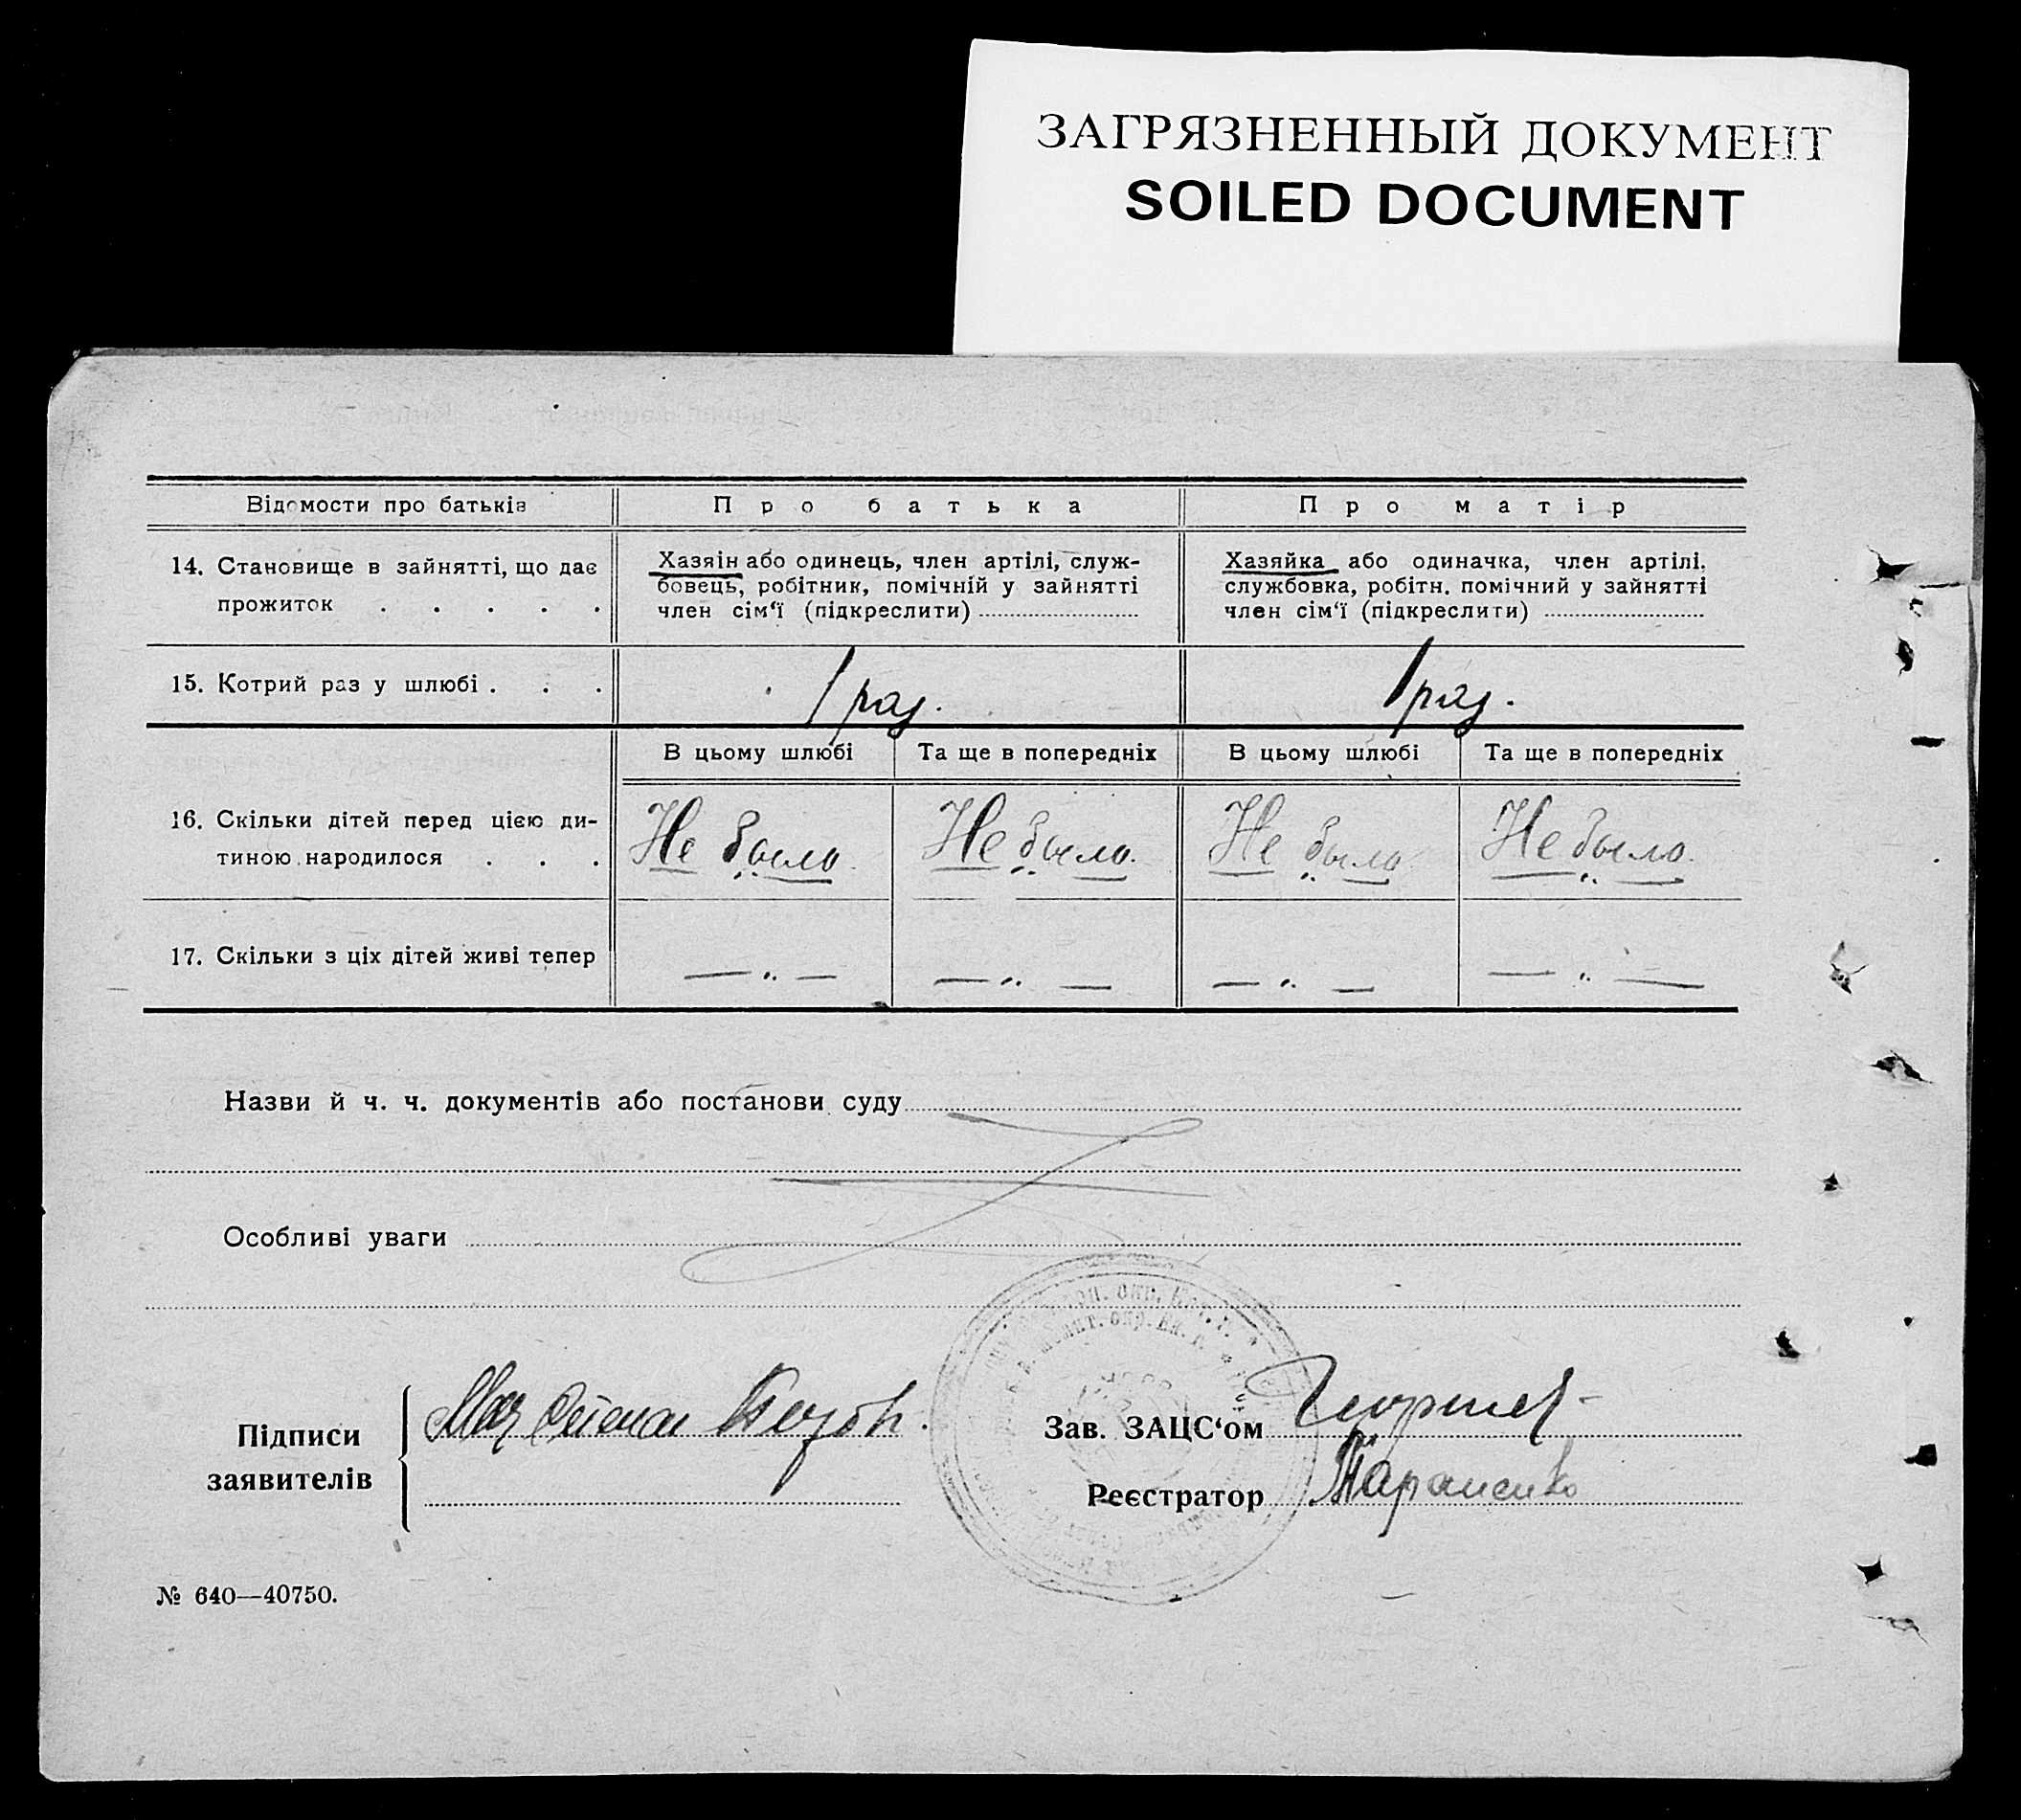 ЗАГРЯЗНЕННЫЙ ДОКУМЕНТ
SOILED DOCUMENT
Відомости про батьків
Про батька
Про матір
14. Становище в зайнятті, що дає
прожиток . . . . .
Хазяін або одинець, член артілі, служ-
бовець, робітник, помічній у зайнятті
член сім‘ї (підкреслити)
Хазяйка або одиначка, член артілі,
службовка, робітн. помічний у зайнятті
член сім‘ї (підкреслити)
15. Котрий раз у шлюбі . . .
1 раз.
1 раз.
В цьому шлюбі
Та ще в попередніх
В цьому шлюбі
Та ще в попередніх
16. Скільки дітей перед цією ди-
тиною народилося . . .
Не было.
Не было.
Не было.
Не было.
17. Скільки з ціх дітей живі тепер
— „ —
— „ —
— „ —
— „ —
Назви й ч. ч. документів або постанови суду
Особливі уваги
Підписи
заявителів
Зав. ЗАЦС‘ом
Реєстратор
Тараненко
№ 640—40750.